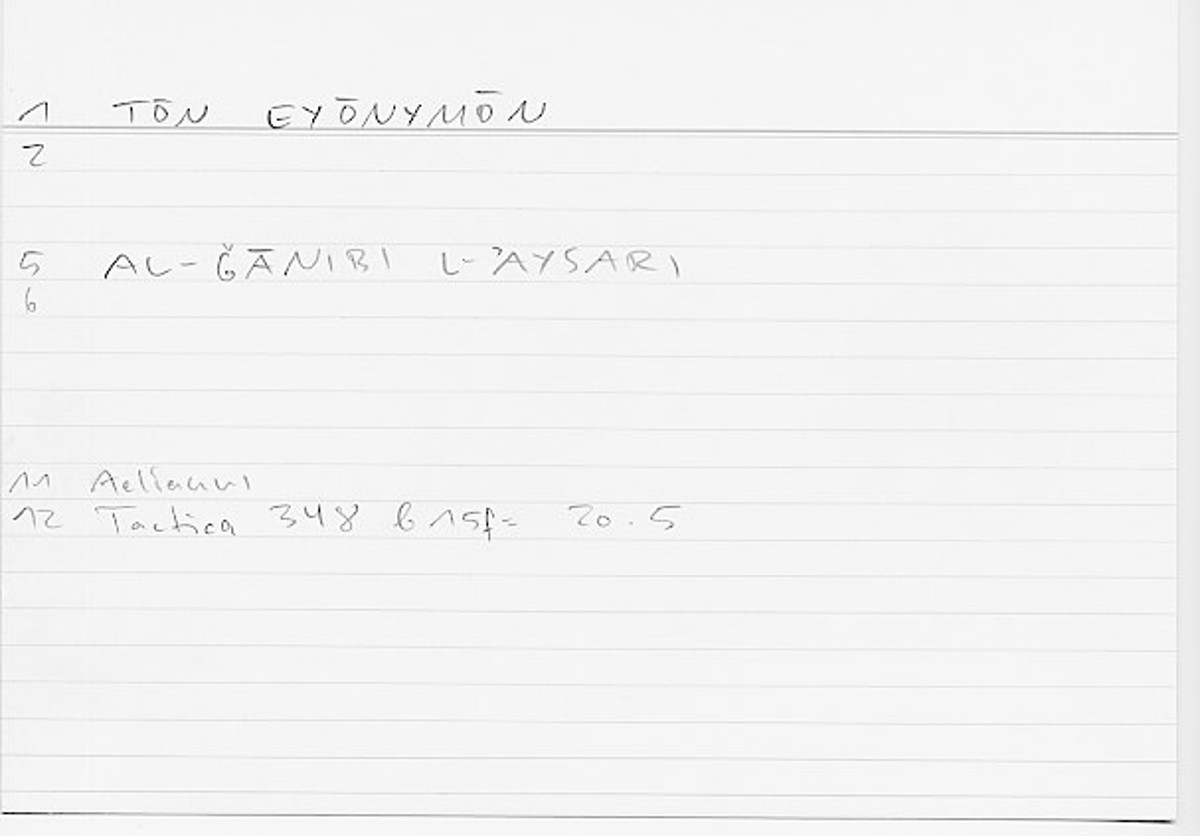 1 TŌN EYŌNYMŌN
2
5 AL-ǦĀNIBI L-ʾAYSARI
6
11 Aelianus
12 Tactica 348 b 15f= 20.5